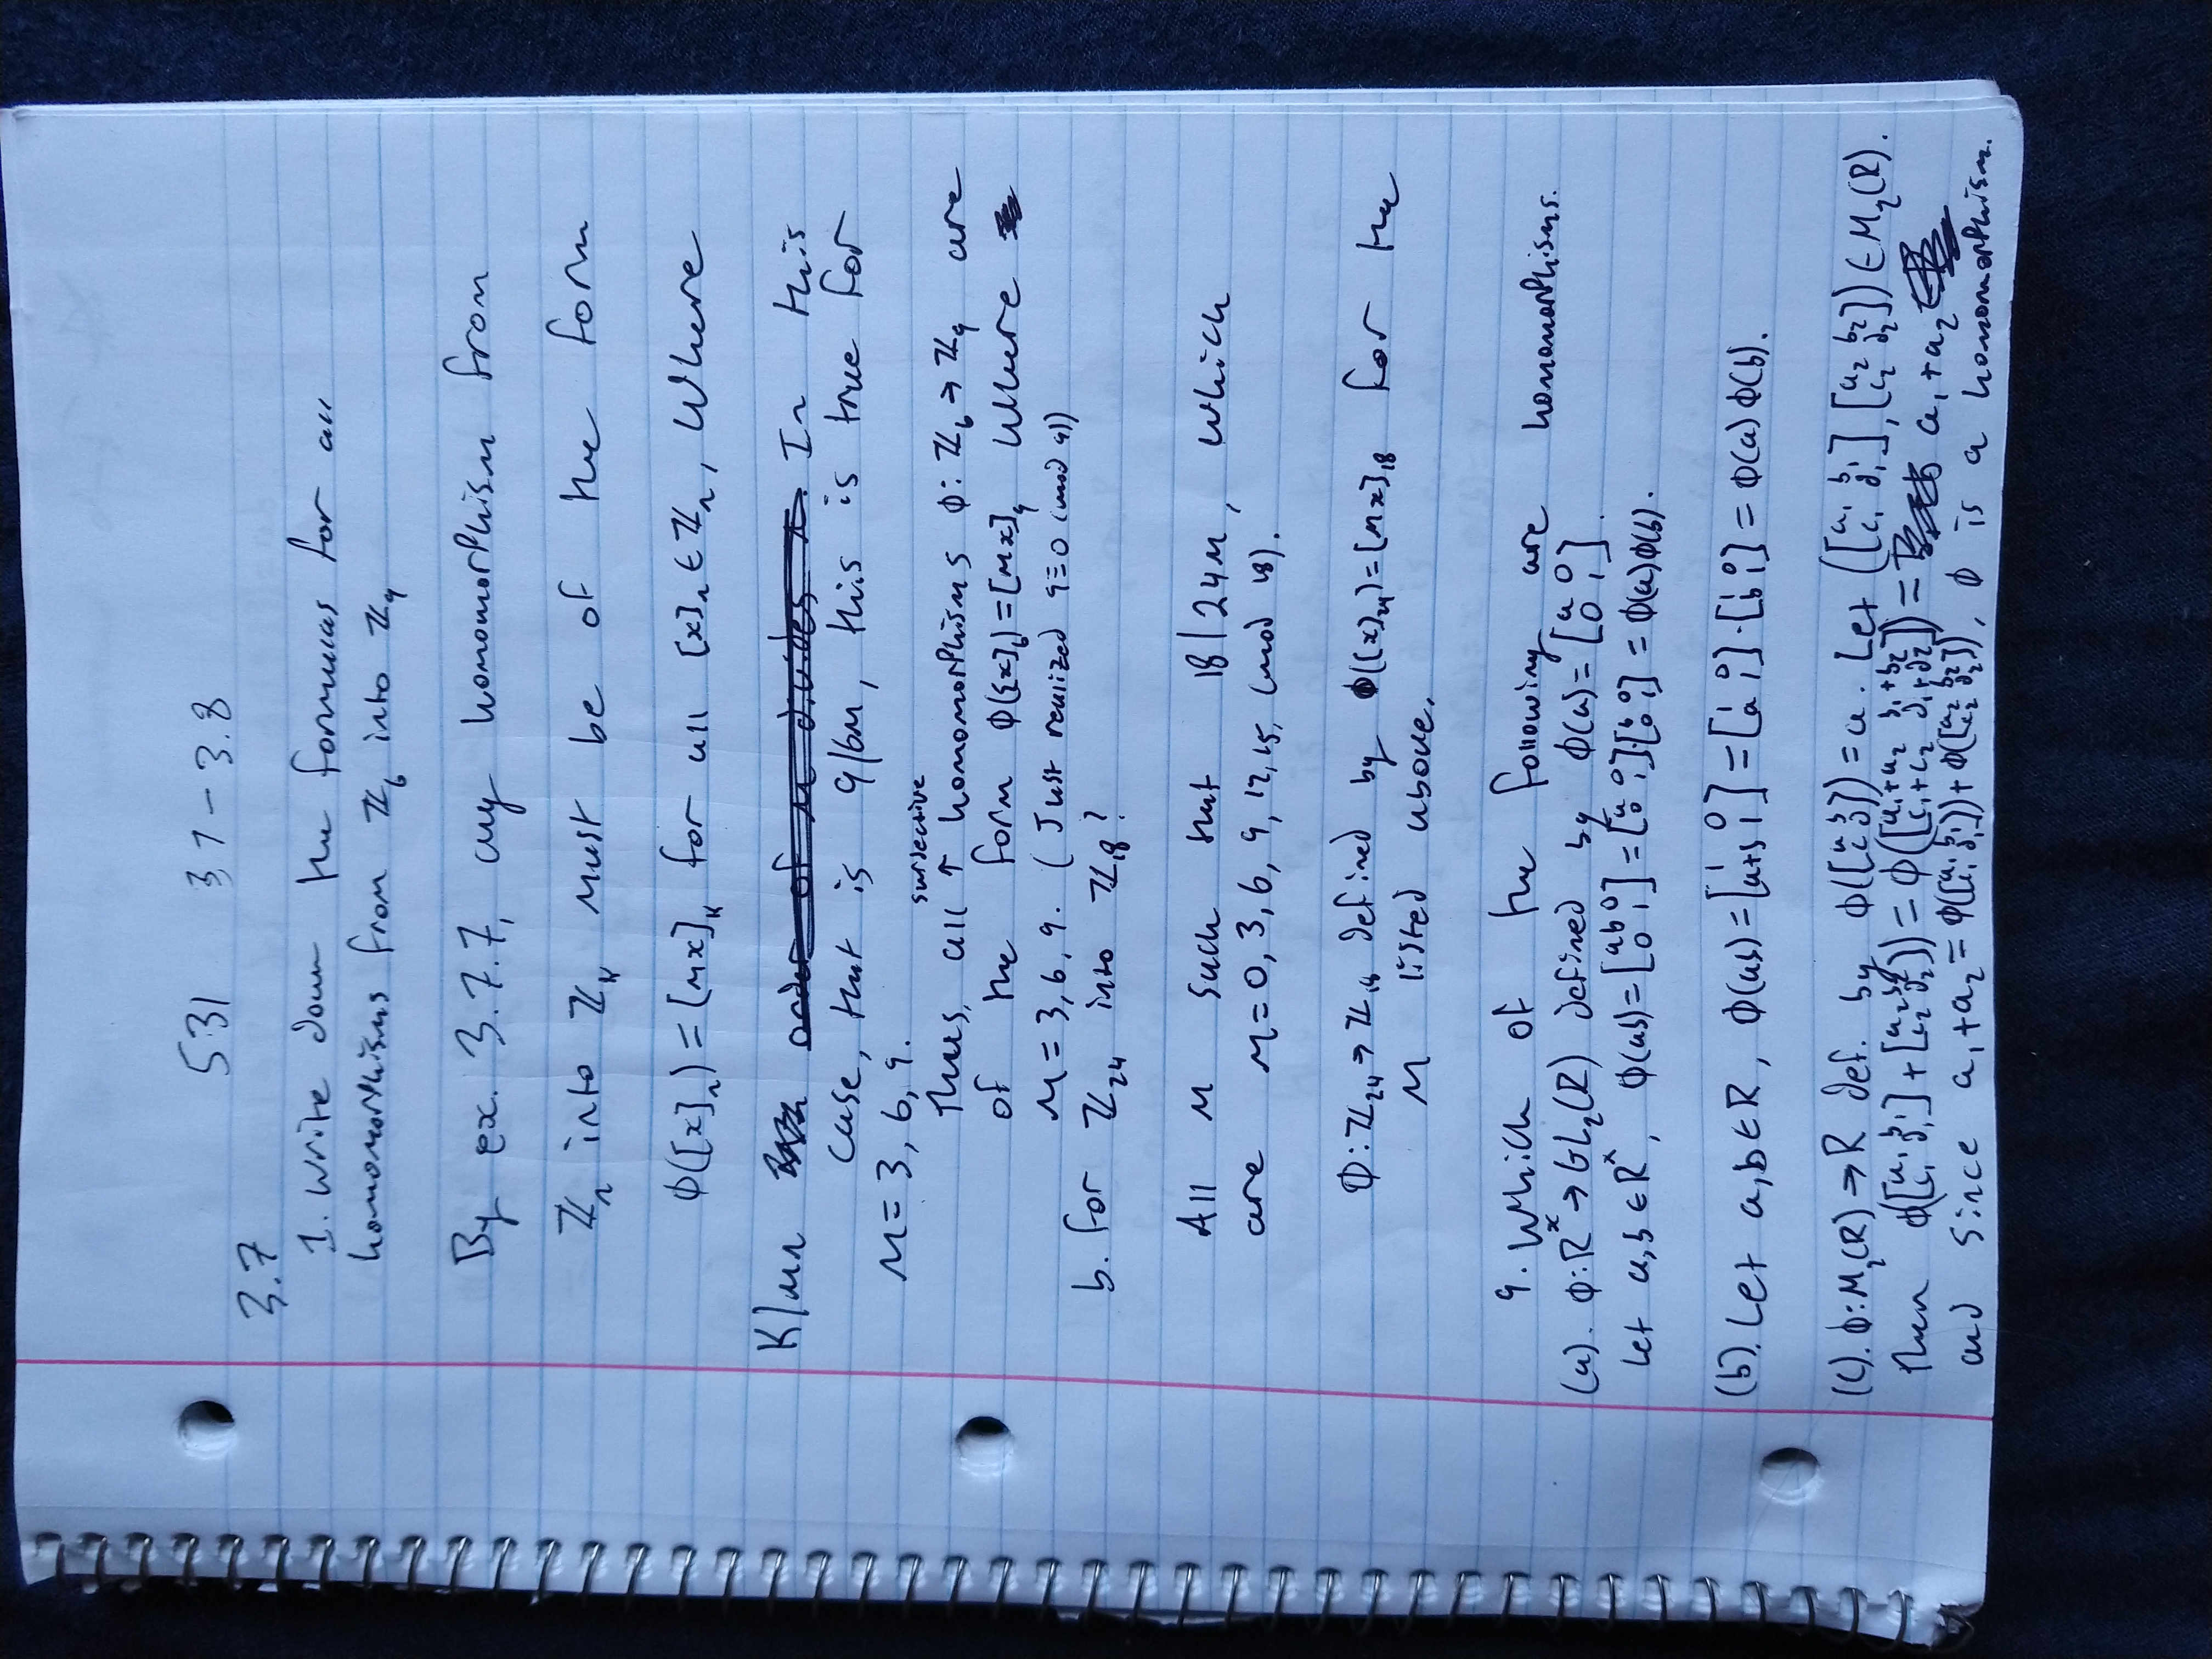 531 3.1-3.8
3.7
1. Write down the formulas for all
homomorphisms from ℤ₆ into ℤ₉
By ex. 3.7.7, any homomorphism from
ℤₙ into ℤₖ must be of the form
ϕ([x]ₙ) = [mx]ₖ for all [x]ₙ ∈ ℤₙ, where
k|mn In this
case, that is 9|6m, this is true for
m=3,6,9.
surjective
Thus, all ↑ homomorphisms ϕ:ℤ₆→ℤ₉ are
of the form ϕ([x]₆)=[mx]₉ where
m=3,6,9. (Just realized 9≡0 (mod 9))
b. for ℤ₂₄ into ℤ₁₈?
All m such that 18|24m, which
are m=0,3,6,9,12,15, (mod 18).
ϕ:ℤ₂₄→ℤ₁₈ defined by ϕ([x]₂₄)=[mx]₁₈ for the
m listed above.
9. Which of the following are homomorphisms.
(a). ϕ:ℝˣ→GL₂(ℝ) defined by ϕ(a)=[a 0; 0 1].
Let a,b∈ℝˣ, ϕ(ab)=[ab 0; 0 1]=[a 0; 0 1]·[b 0; 0 1]=ϕ(a)ϕ(b).
(b). Let a,b∈ℝ, ϕ(ab)=[1 0; a+b 1]=[1 0; a 1]·[1 0; b 1]=ϕ(a)ϕ(b).
(c). ϕ:M₂(ℝ)→ℝ def. by ϕ([a b; c d])=a. Let ([a₁ b₁; c₁ d₁],[a₂ b₂; c₂ d₂])∈M₂(ℝ).
Then ϕ([a₁ b₁; c₁ d₁]+[a₂ b₂; c₂ d₂])=ϕ([a₁+a₂ b₁+b₂; c₁+c₂ d₁+d₂])= a₁+a₂
and since a₁+a₂=ϕ([a₁ b₁; c₁ d₁])+ϕ([a₂ b₂; c₂ d₂]), ϕ is a homomorphism.